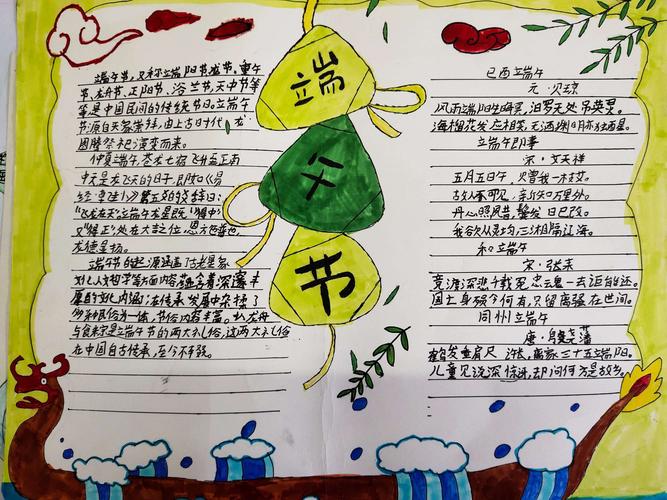 端午节,又称端阳节、龙节、重午
节、龙舟节、正阳节、浴兰节、天中节等
等是中国民间的传统节日。端午
节源自天象崇拜,由上古时代龙
图腾祭祀演变而来。
仲夏端午,苍龙七宿飞升至正南
中天是龙飞天的日子,即如《易
经·乾卦》第五爻的爻辞曰:
"飞龙在天"端午龙星既"得中"
又"得正"处在大吉之位,
龙德呈扬。
端午节的起源涵盖古老星象
文化人文哲学等方面内容蕴含着深邃丰
厚的文化内涵;在传承发展中杂揉了
多种民俗为一体,节俗内容丰富。扒龙舟
与食粽是端午节的两大礼俗,这两大礼俗
在中国自古传承,至今不辍。
端
父
节
已酉端午
元·贝琼
风雨端阳生晦冥,汩罗无处吊英灵。
海榴花发应相笑,无酒渊明亦独醒。
端午即事
宋·文天祥
五月五日午,赠我一枝艾。
故人不可见,新知万里外。
丹心照夙昔,鬓发日已改。
我欲从灵均,三湘隔辽海。
和端午
宋·张耒
竞渡深悲千载冤,忠魂一去讵能还。
国亡身殒今何有,只留离骚在世间。
同州端午
唐·殷尧藩
鹤发垂肩尺许长,离家三十五端阳。
儿童见说深惊讶,却问何方是故乡。